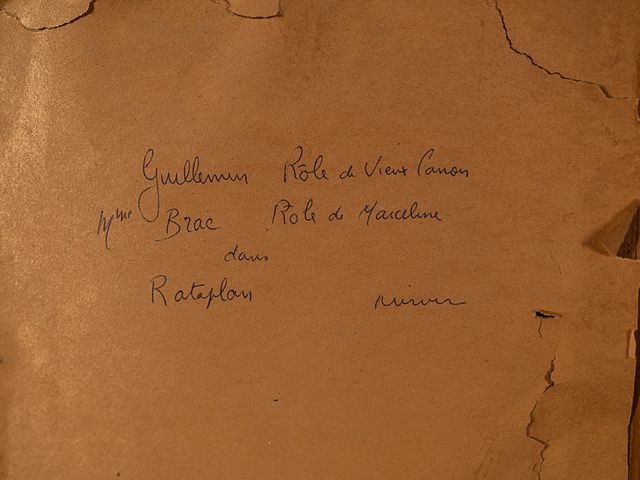 Guillemin Rôle de Vieux Canon
Mme Brac Rôle de Marceline
dans
Rataplan